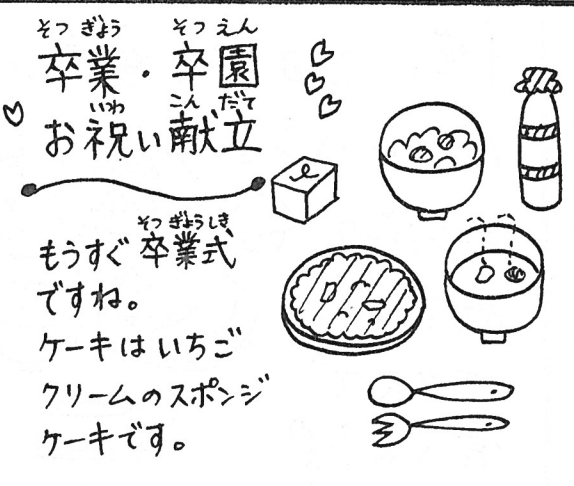 そつぎょう そつえん
卒業・卒園
いわ こんだて
お祝い献立
そつぎょうしき
もうすぐ卒業式
ですね。
ケーキはいちご
クリームのスポンジ
ケーキです。